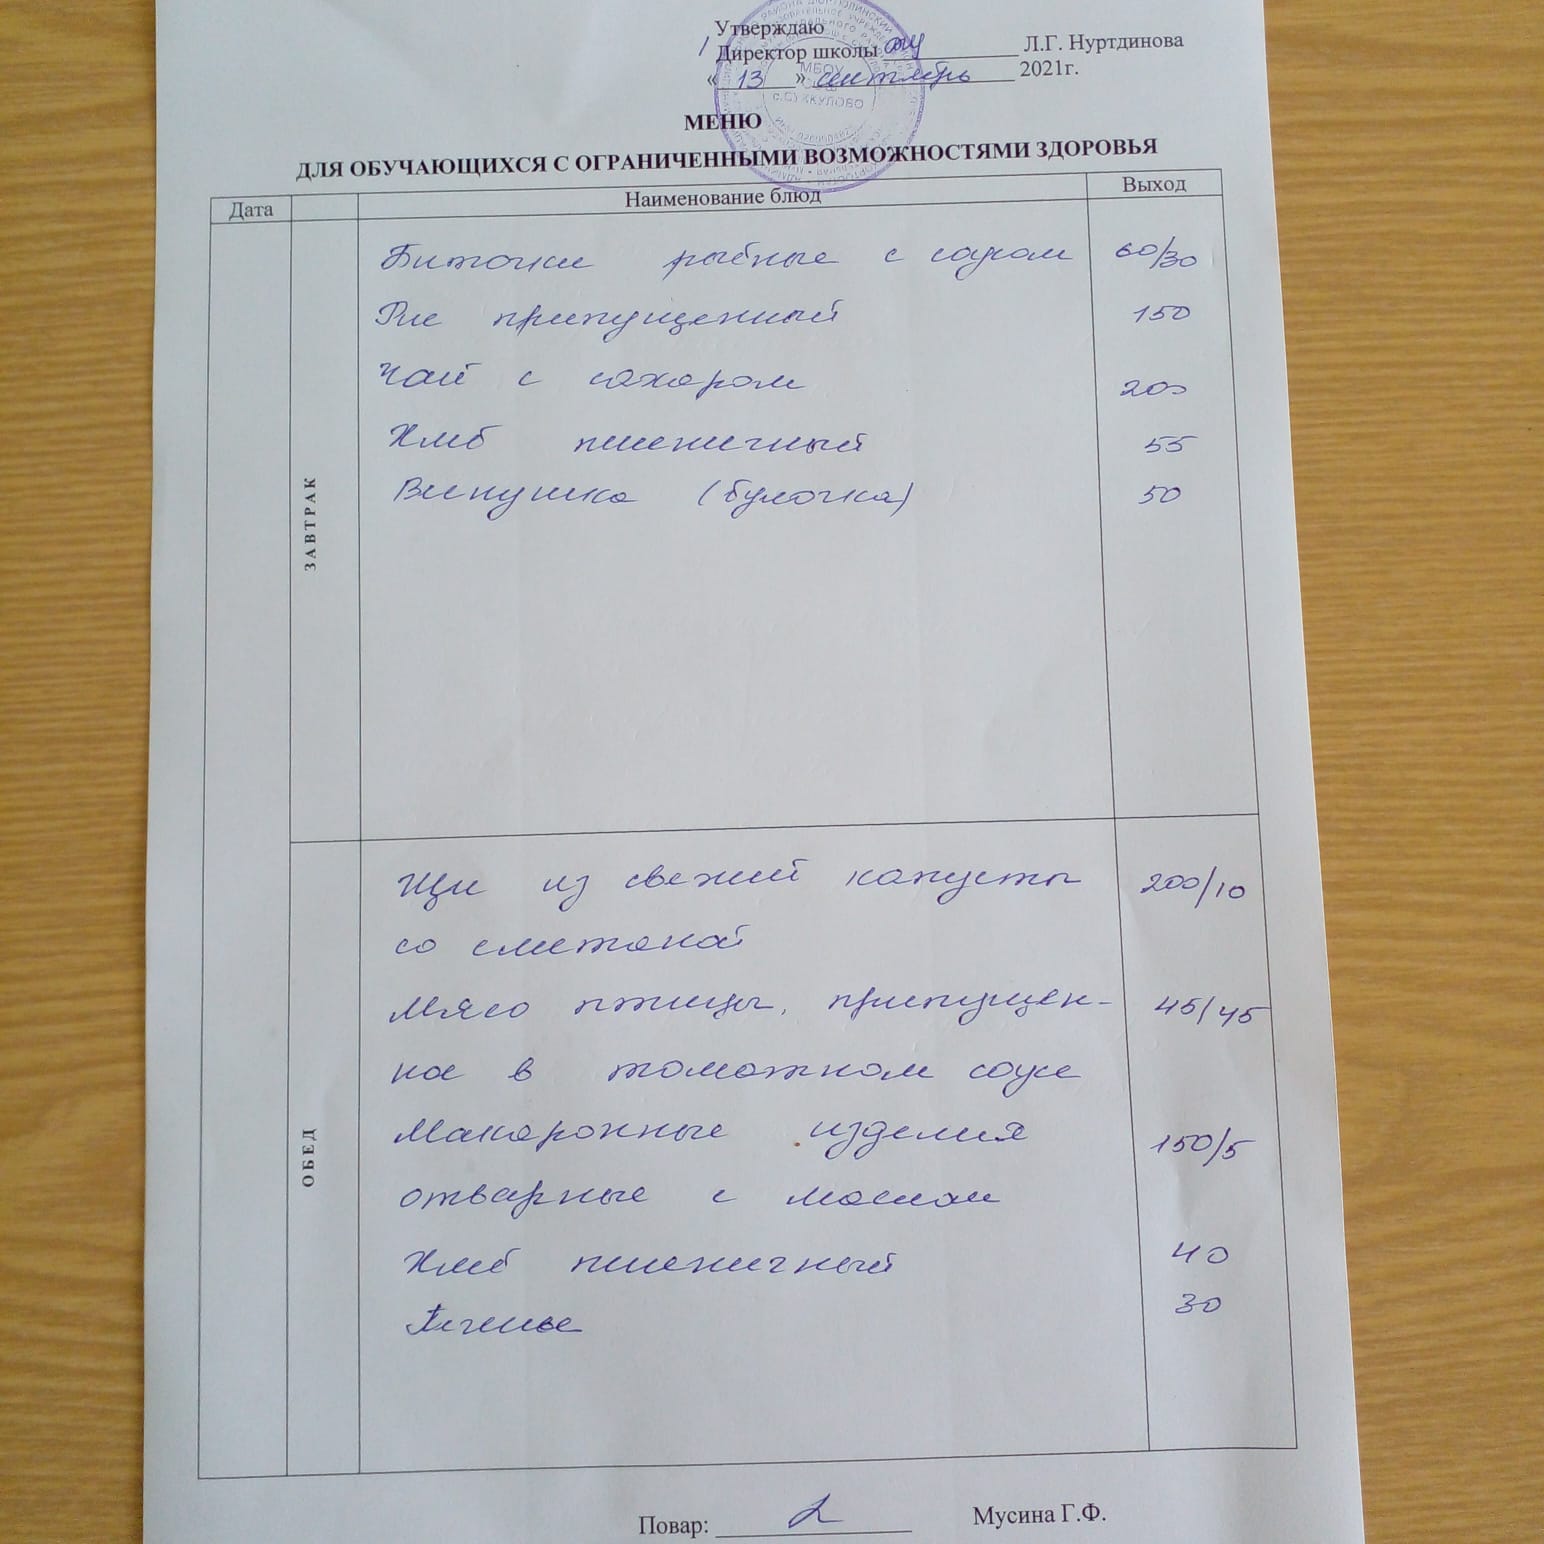 Утверждаю
Директор школы Л.Г. Нуртдинова
« 13 » сентябрь 2021г.
МБОУ
СОШ
с.СУККУЛОВО
МЕНЮ
ДЛЯ ОБУЧАЮЩИХСЯ С ОГРАНИЧЕННЫМИ ВОЗМОЖНОСТЯМИ ЗДОРОВЬЯ
Дата Наименование блюд Выход
ЗАВТРАК
Биточки рыбные с 60/30
Рис припущенный 150
Чай с сахаром 200
Хлеб пшеничный 55
Випушка (булочка) 50
ОБЕД
Щи из свежий капусты 200/10
со сметаной
Мясо птицы, припущен- 45/45
ное в томатном соусе
Макаронные изделия 150/5
отварные с маслом
Хлеб пшеничный 40
Печенье 30
Повар: Мусина Г.Ф.